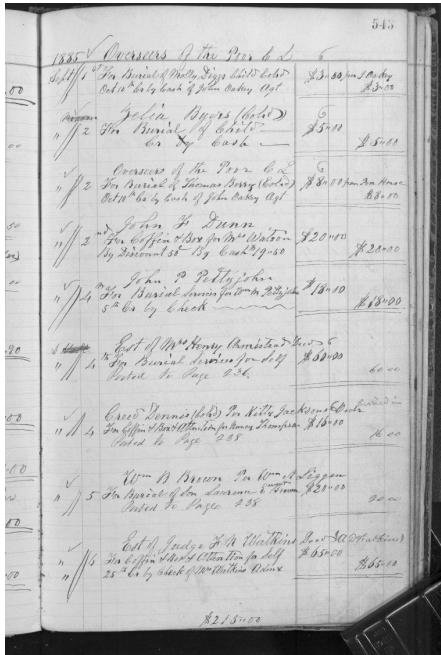 545
1885 Overseers of the Poor C L
Sept 1st For Burial of Molly Diggs Child Cold $3.00 per J Oakey
Oct 10th Cr by Cash of John Oakey Agt $3.00
Zelia Byers (Cold)
" 2 For Burial of Child $5.00
Cr by Cash $5.00
Overseers of the Poor C L
" 2 For Burial of Thomas Berry (Cold) $8.00 from Poor House
Oct 10th Cr by Cash of John Oakey Agt $8.00
John F Dunn
" 2nd For Coffin & Box for Mrs Watson $20.00
By Discount 50c By Cash 19.50 $20.00
John P Pettyjohn
" 4 For Burial Services for Pettyjohn $18.00
5th Cr by Check $18.00
Est of Mrs Henry Armistead Decd
" 4th For Burial Services for Self $60.00
Posted to Page 236 60 00
Creed Dennis (Cold) Per Kitty Jackson
" 4 For Coffin & Box & Attention for Thompson $16.00
Posted to Page 238 16 00
Wm B Brown Per Wm A Liggon
" 5 For Burial of Brown $20.00
Posted to Page 238 20 00
Est of Judge F N Watkins Decd
" 5 For Coffin & Box & Attention for Self $65.00
25th Cr by Check of Mrs Watkins Admx $65.00
$215.00